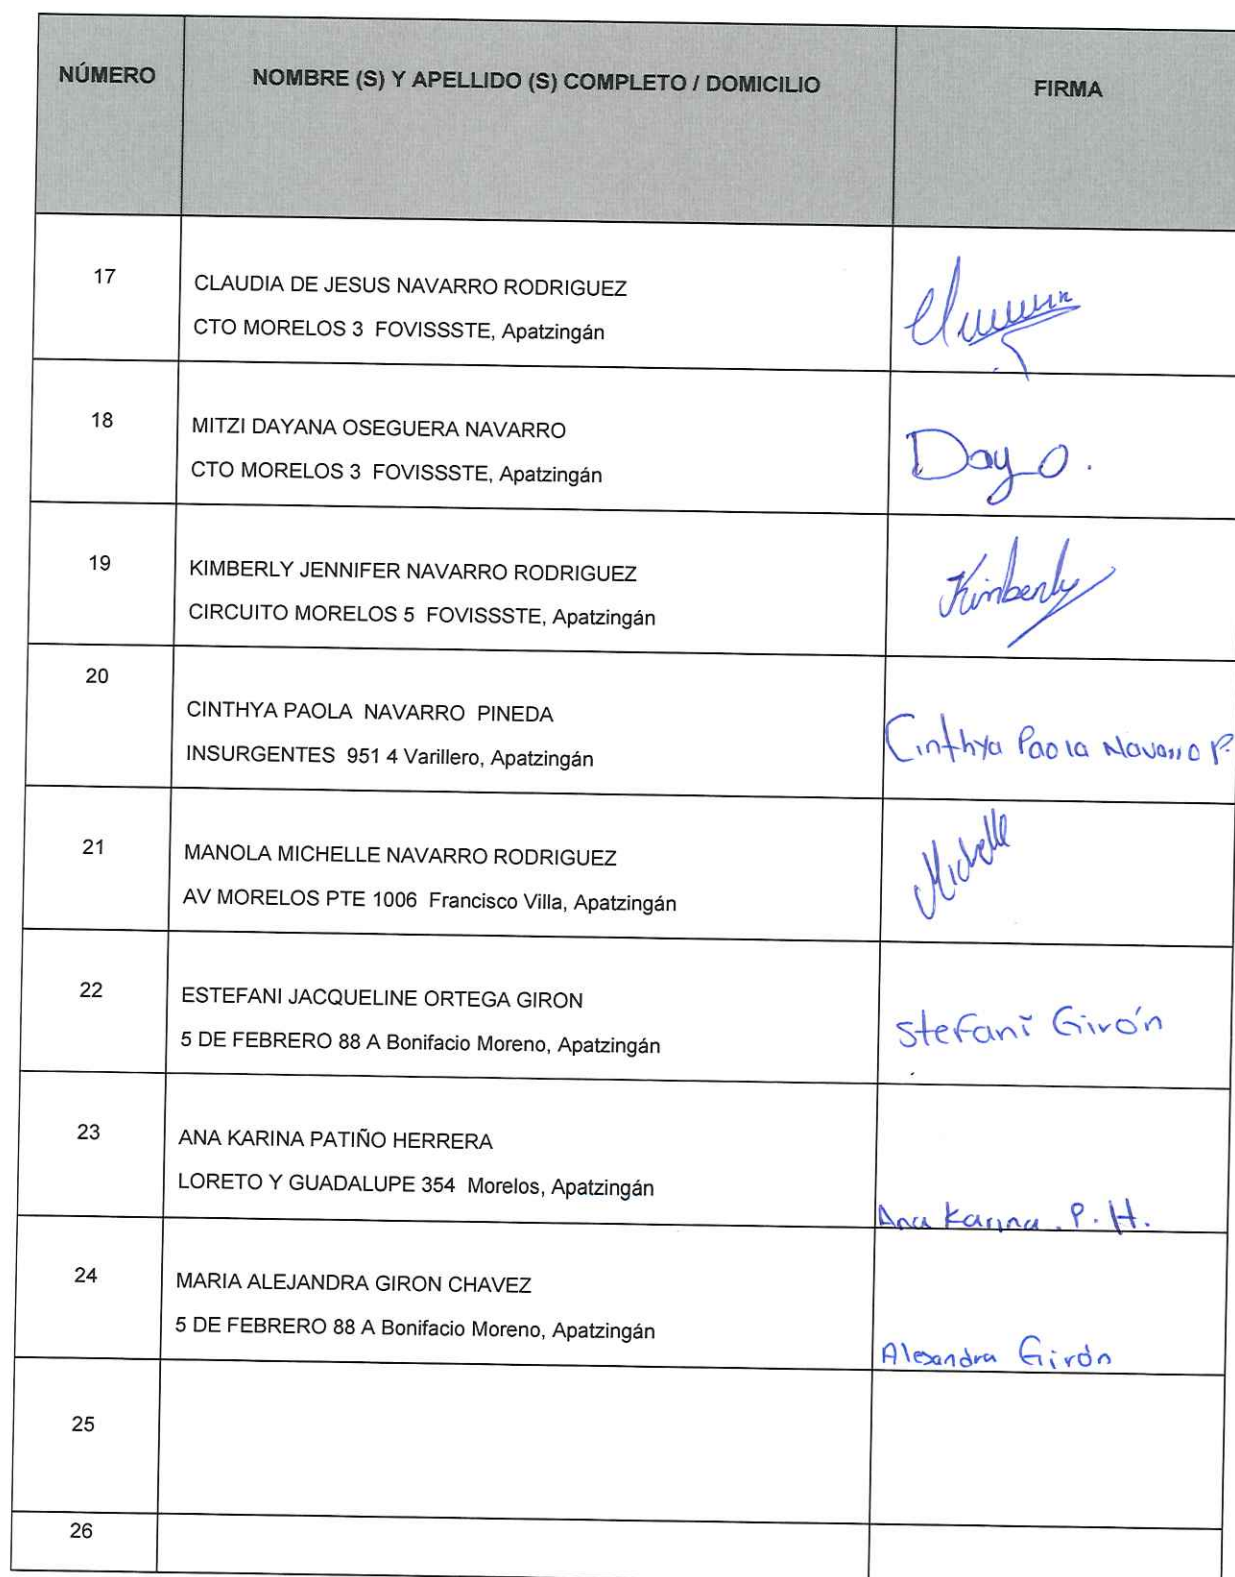 NÚMERO NOMBRE (S) Y APELLIDO (S) COMPLETO / DOMICILIO FIRMA
17 CLAUDIA DE JESUS NAVARRO RODRIGUEZ
CTO MORELOS 3 FOVISSSTE, Apatzingán
18 MITZI DAYANA OSEGUERA NAVARRO
CTO MORELOS 3 FOVISSSTE, Apatzingán
Day O.
19 KIMBERLY JENNIFER NAVARRO RODRIGUEZ
CIRCUITO MORELOS 5 FOVISSSTE, Apatzingán
Kimberly
20
CINTHYA PAOLA NAVARRO PINEDA
INSURGENTES 951 4 Varillero, Apatzingán
Cinthya Paola Navarro P.
21 MANOLA MICHELLE NAVARRO RODRIGUEZ
AV MORELOS PTE 1006 Francisco Villa, Apatzingán
Michelle
22 ESTEFANI JACQUELINE ORTEGA GIRON
5 DE FEBRERO 88 A Bonifacio Moreno, Apatzingán
Stefani Girón
23 ANA KARINA PATIÑO HERRERA
LORETO Y GUADALUPE 354 Morelos, Apatzingán
Ana Karina. P. H.
24 MARIA ALEJANDRA GIRON CHAVEZ
5 DE FEBRERO 88 A Bonifacio Moreno, Apatzingán
Alejandra Girón
25
26